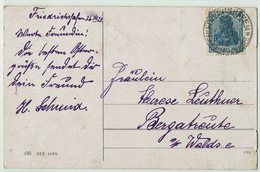 Friedrichshafen
Werte Freundin!
Die besten Oster-
grüße sendet dir
dein Freund
H. Schmid
Fräulein
Therese Leuthner
Bergatreute
a/ Waldsee